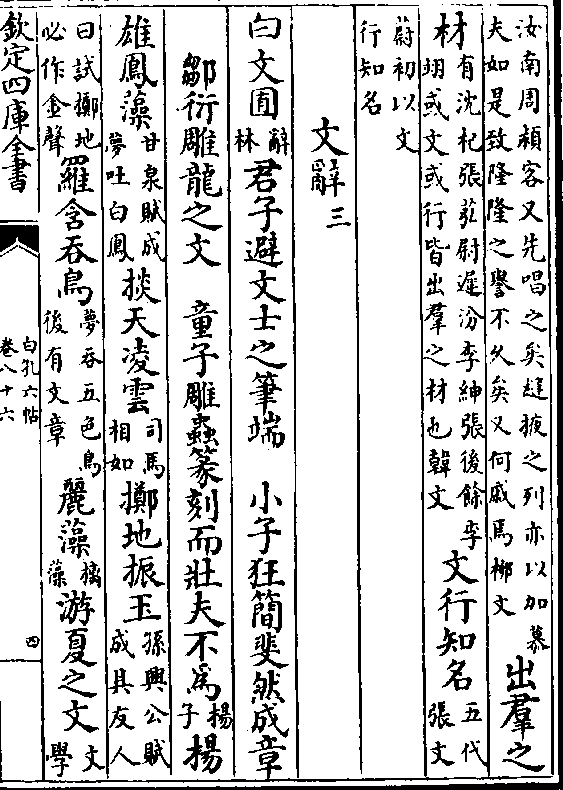 汝南周顏客又先唱之矣縫掖之列亦以加慕
夫如是致隆隆之譽不久矣又何戚焉柳文
出羣之
材
有沈杞張苰尉遲汾李紳張後餘李
翊或文或行皆出羣之材也韓文
文行知名
五代
張文
蔚初以文
行知名
文辭三
白文囿
辭
林
君子避文士之筆端　小子狂簡斐然成章
鄒衍雕龍之文　童子雕蟲篆刻而壯夫不為
楊
子
楊
雄鳳藻
甘泉賦成
夢吐白鳳
掞天凌雲
司馬
相如
擲地振玉
孫興公賦
成具友人
曰試擲地
必作金聲
羅含吞鳥
夢吞五色鳥
後有文章
麗藻
摛
藻
游夏之文
文
學
欽定四庫全書
白孔六帖
卷八十六
四